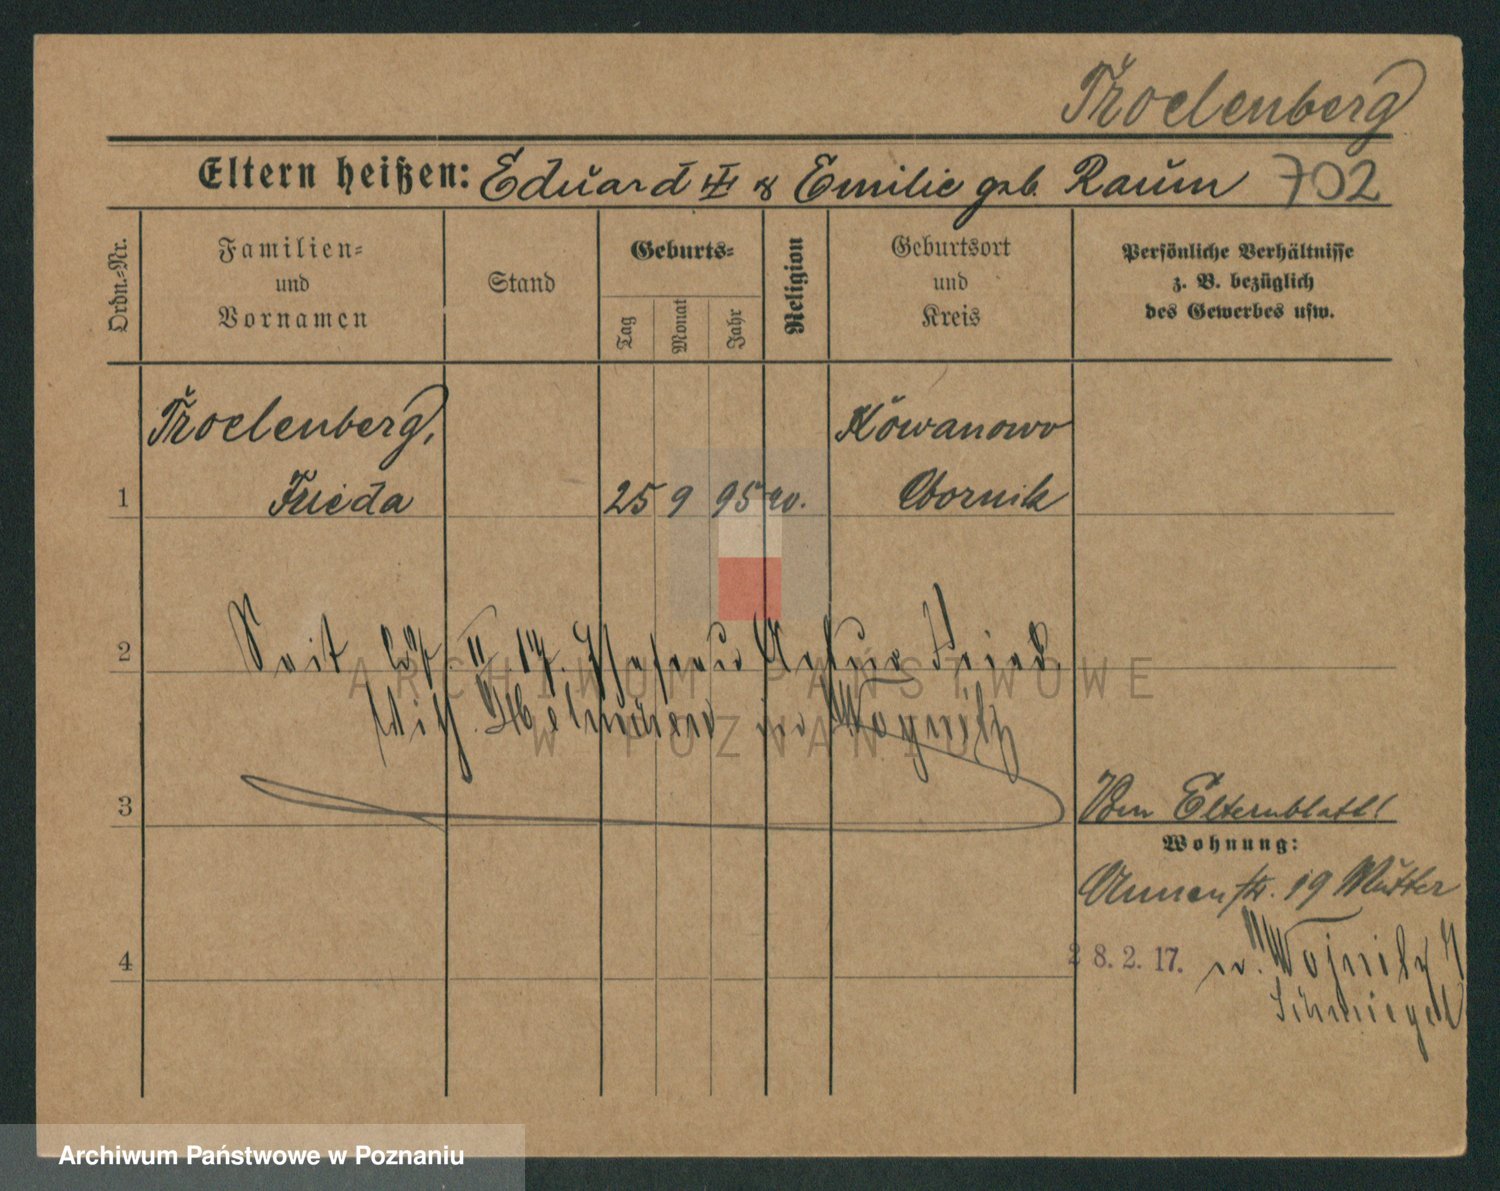 Troelenberg
Eltern heißen: Eduard ⚔ & Emilie geb. Raum 702
Ordn.-Nr.
Familien-
und
Vornamen
Stand
Geburts-
Tag
Monat
Jahr
Religion
Geburtsort
und
Kreis
Persönliche Verhältnisse
z. B. bezüglich
des Gewerbes usw.
Troelenberg,
Kowanowo
1 Frieda 25 9 95 ev. Obornik
2 Seit II 17
ARCHIWUM PAŃSTWOWE
W POZNANIU
3
Vom Elternblatt!
Wohnung:
Annenstr. 19 Mutter
4
28.2.17. n. Wojnitz
Schmiegel
Archiwum Państwowe w Poznaniu